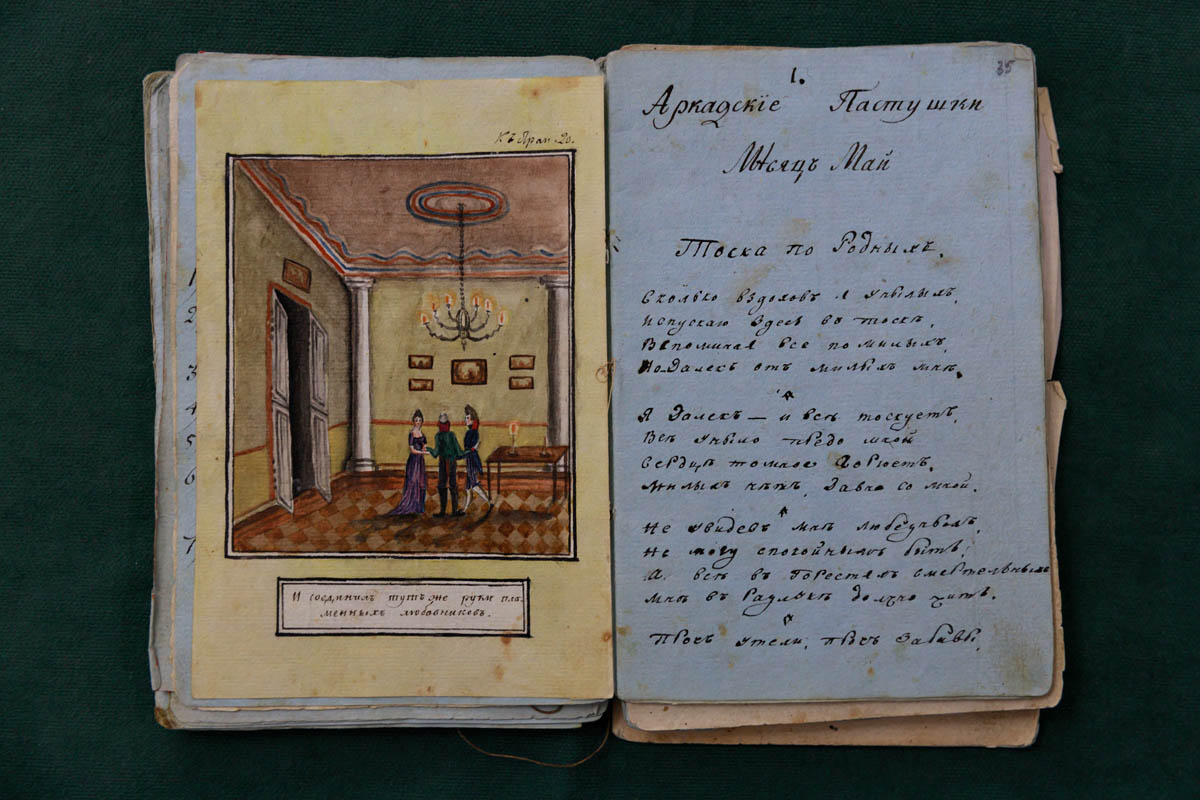 Къ Стран. 20.
И соединилъ тутъ же руки пла-
менныхъ любовниковъ.
1
2
3
4
5
6
7
35
1.
Аркадскіе Пастушки
Мѣсяцъ Май
Тоска по Родныхъ.
Сколько вздоховъ я унылыхъ,
Испускаю здесь въ тоскѣ,
Вспоминая все по милыхъ,
Но далекъ отъ милыхъ мнѣ.
Я далекъ — и всѣ тоскуетъ,
Всѣ уныло предо мной
Сердце томное горюетъ,
Милыхъ нѣтъ, со мной.
Не увидевъ мнѣ любезныхъ,
Не могу спокойнымъ быть,
А всѣ въ горестяхъ смертельныхъ
Мнѣ въ разлукѣ должно жить.
Прочь утехи, прочь забавы,